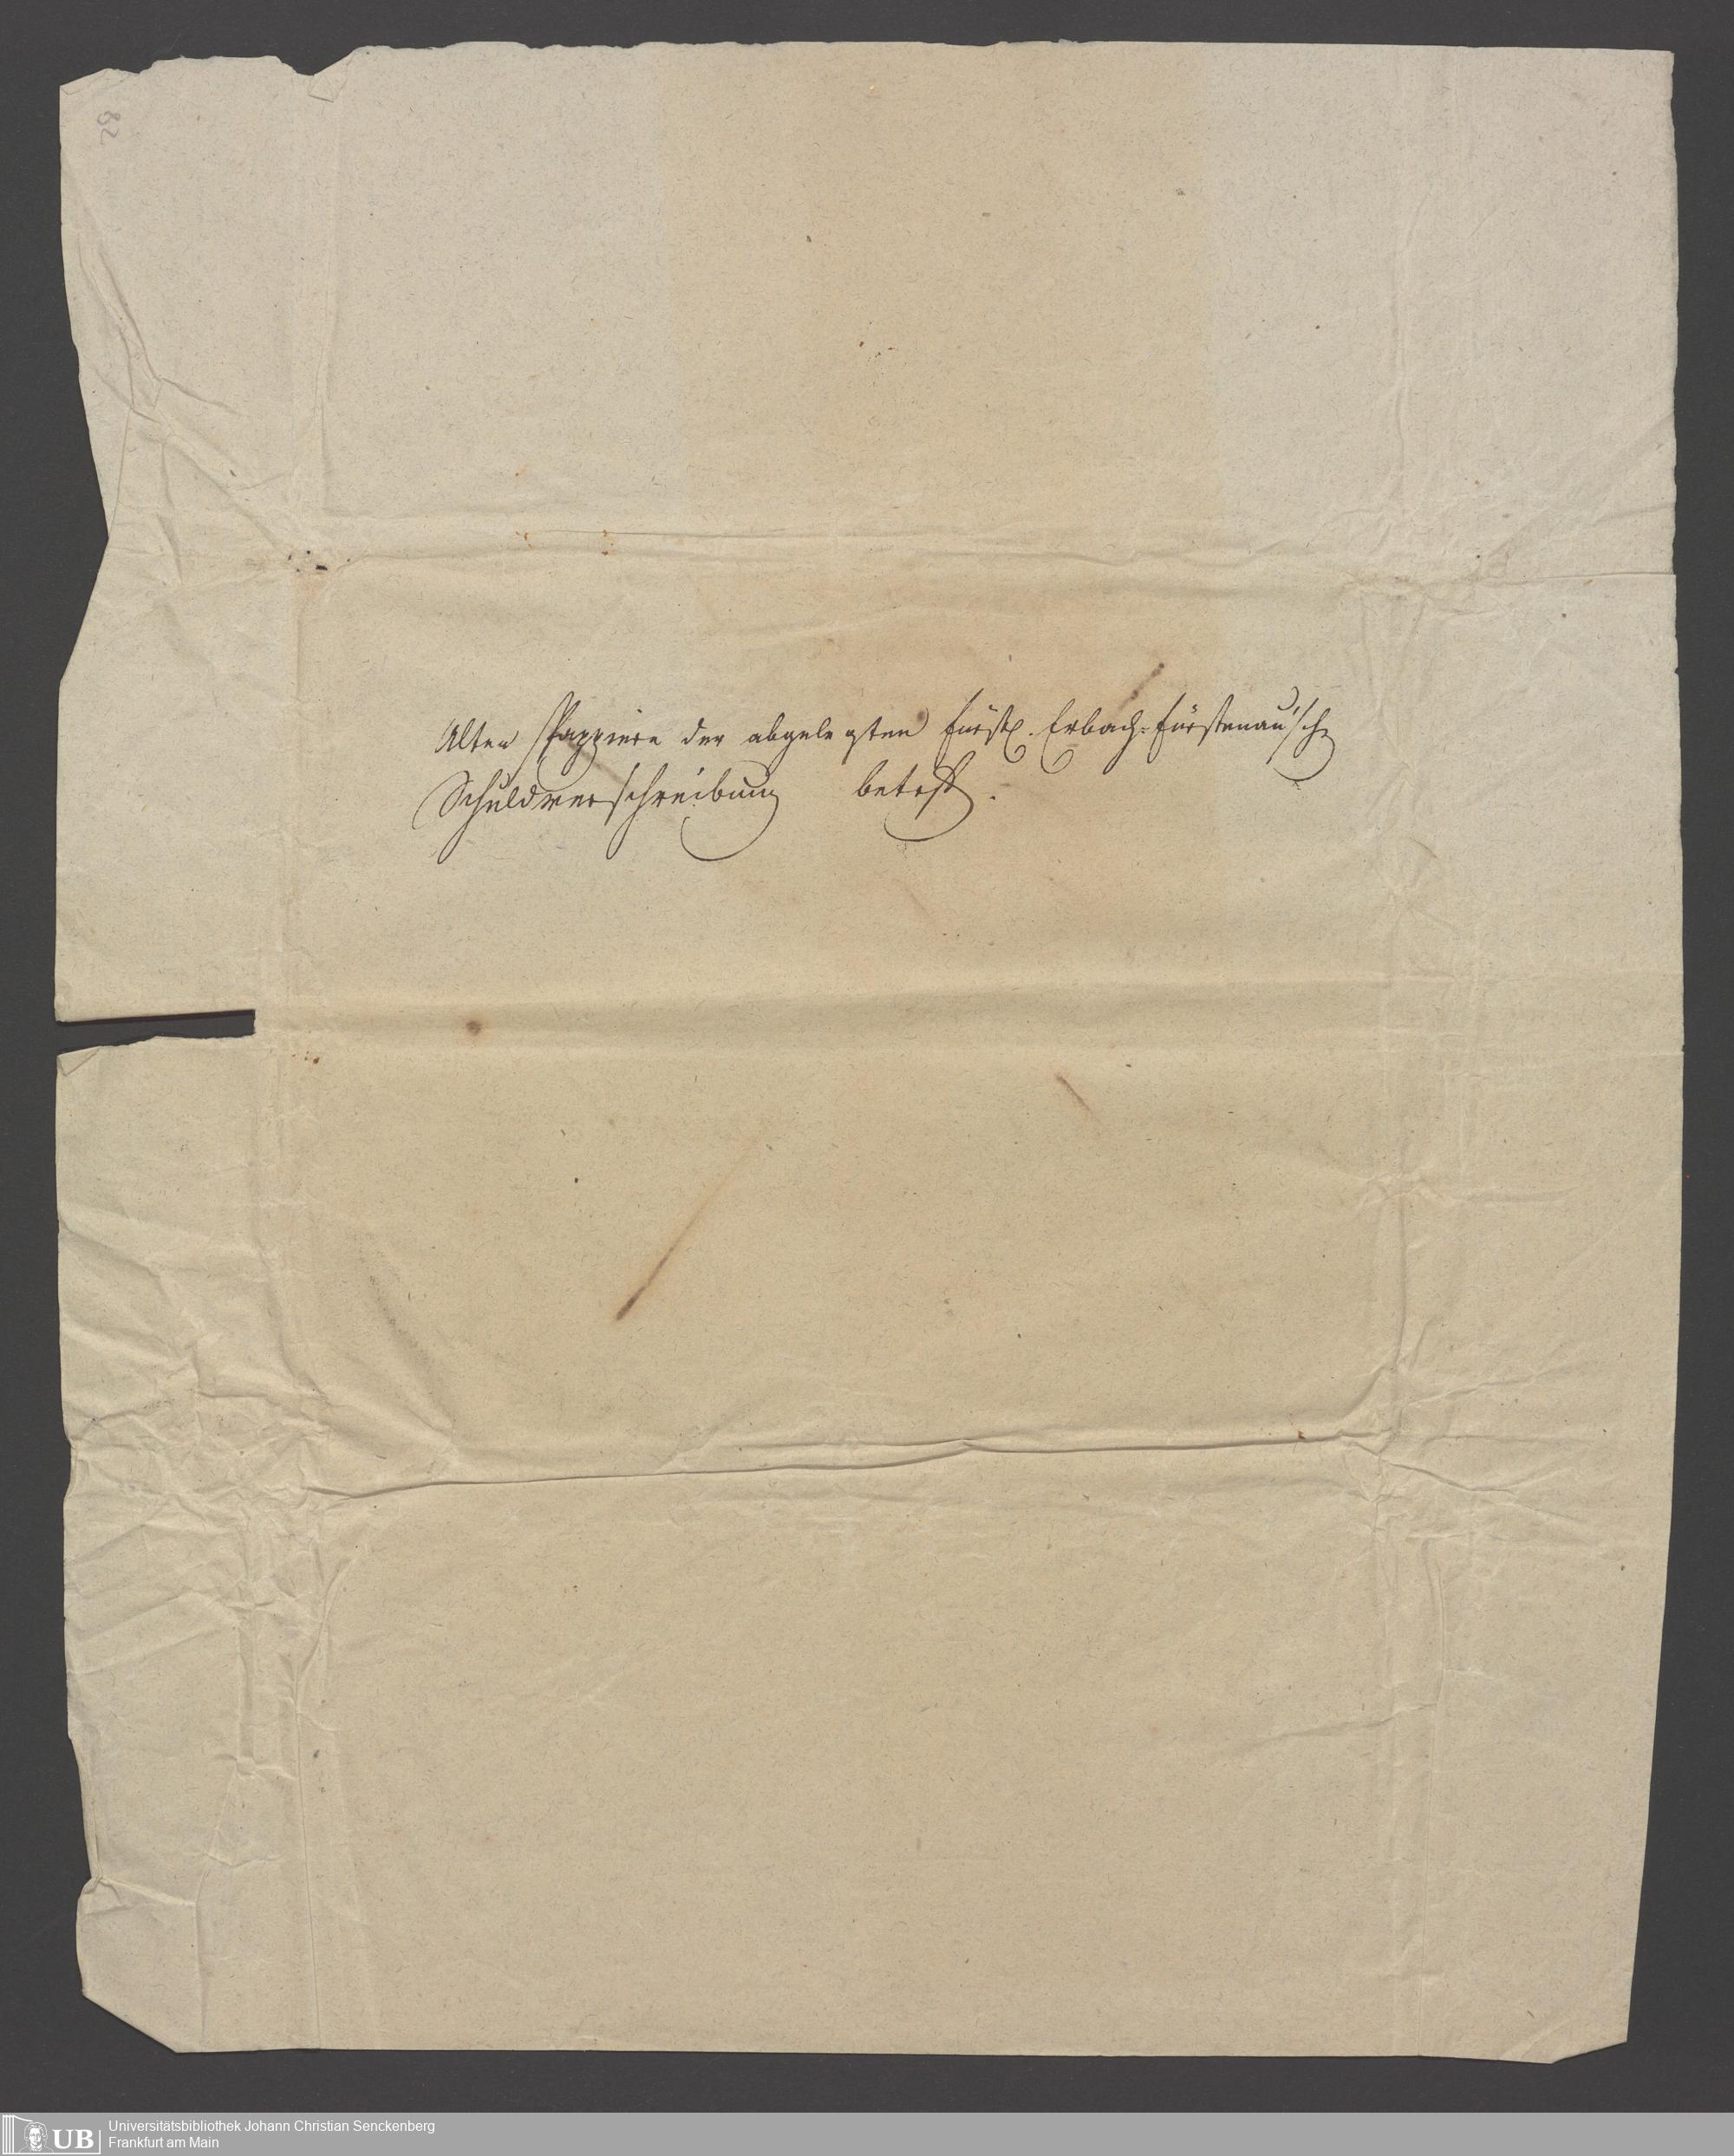 82
Alten Pappiere der abgelegten Fürstl. Erbach-Fürstenau'sche
Schuldverschreibung betrfd.
UB
Universitätsbibliothek Johann Christian Senckenberg
Frankfurt am Main